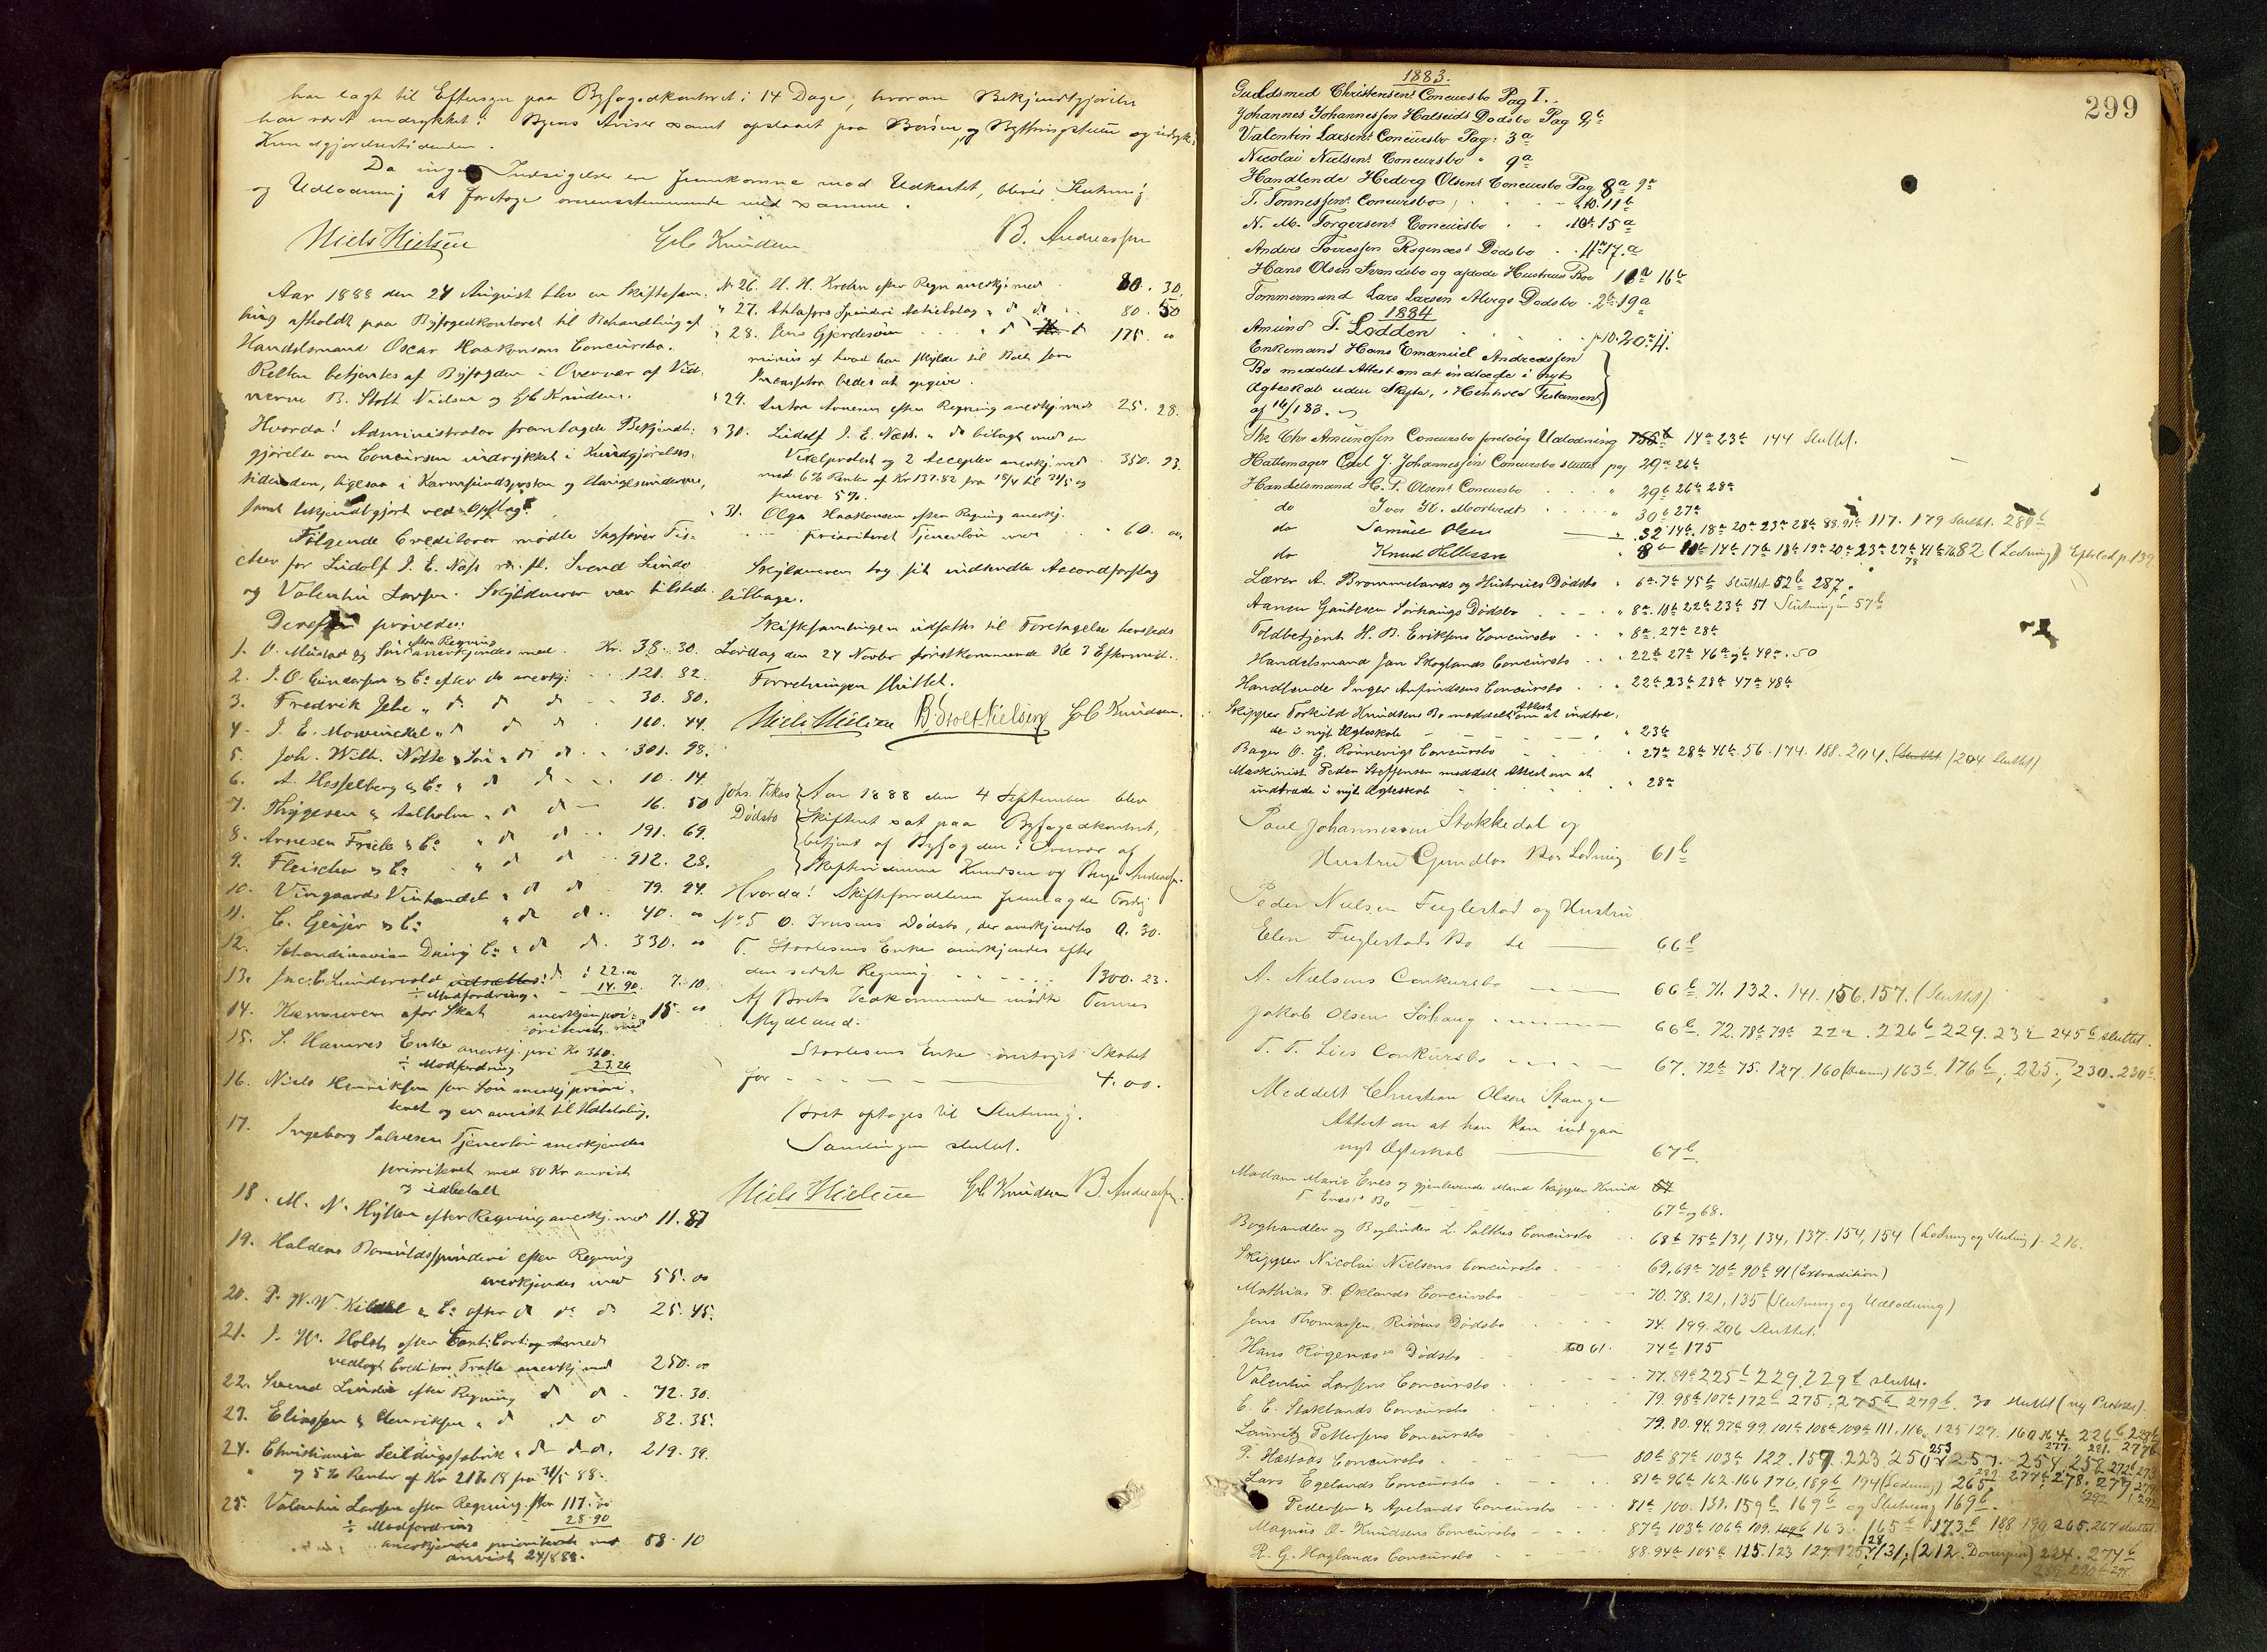 har lagt til Eftersyn paa Byfogedkontoret i 14 Dage, hvorom Bekjendtgjørelse
har været indrykket i Byens Aviser samt opslaaet paa Børsen og Bythingstuen og indryk:
Kundgjørelsestidenden.
Da ingen Indsigelser er fremkomne mod Udkastet, blev Slutning
og Udlodning at foretage overensstemmende med samme.
Niels Nielsen Gb Knudsen B. Andreassen
Aar 1888 den 24 August blev en Skiftesam:
ling afholdt paa Byfogedkontoret til Behandling af
Handelsmand Oscar Haakonsens Concursbo.
Retten betjentes af Byfogden i Overvær af Vid:
nerne B. Stolt Nielsen og Gb Knudsen.
Hvorda! Administrator fremlagde Bekjendt:
gjørelse om Concursen indrykket i Kundgjørelses:
tidenden, ligesaa i Karmsundsposten og Haugesunderen,
samt bekjendtgjort ved Opslag.
Følgende Creditorer mødte Sagfører Fis:
cher for Ludolf J. E. Næss Svend Linde
og Valentin Larsen. Skyldneren var tilstede.
Derefter prøvedes:
1. O. Mustad & Søn efter Regning anerkjendes med Kr. 38. 30.
2. J. O. Gundersen & Co efter do anerkj: 121. 82.
3. Fredrik Jebe " do do do 30. 80.
4. J. E. Mowinckel " do do do 160. 44.
5. Joh. Wilh. Nolte & Søn " do do 301. 98.
6. A. Hesselberg & Co " do do 10. 14.
7. Thygesen & Aalholm " do do 16. 50
8. Arnesen Frick & Co " do do 191. 69.
9. Fleischer & Co " do do 912. 28.
10. Vingaards Vinhandel " do do 79. 94.
11. C. Geijer & Co " do do 40. 00
12. Skandinavian Dairy Co " do do 330. 00
13. Jac. C. Lundervold udsættes: do : 22.00
÷ Modfordring 14.90. 7. 10.
14. Kæmneren for Skat anerkjen pri:
oriteret med 15. 00
15. S. Hamres Enke anerkj: pri Kr 360.
÷ Modfordring 23.26
16. Niels Henriksen for Løn anerkj priori:
teret og er anvist til Udbetaling.
17. Ingeborg Salvesen Tjenerløn anerkjendes
prioriteret med 80 Kr anvist
og udbetalt
18. M. N. Hytten efter Regning anerkj. med 11. 87
19. Haldens Bomuldsspinderi efter Regning
anerkjendes med 55. 00
20. P. W. W. Kildal & Co efter do do do 25. 45.
21. J. W. Holst efter med
vedlagt Creditors Tratte anerkj med 250. 00
22. Svend Linde efter Regning do do 72. 30.
23. Eliassen & Henriksen " do do do 82. 35.
24. Christiania Seildugsfabrik " do do do. 219. 39.
" og 5 % Renter af Kr 21 18 fra 31/5 88.
25. Valentin Larsen efter Regning stor 117.00
÷ Modfordring 28.90
anerkjendes prioriteret med 88. 10
anvist 24/8 88.
No 26. H. H. Krohn efter Regn anerkj. med 80. 30.
" 27. Ahlafors Spinderi Actiebolag " do do 80. 50
" 28. Jens Gjerdesøen " do do 175. 00
minus af hvad han skylder til Boet som
Incassator bedes at opgive.
" 29. Anton Arnesen efter Regning anerkj med 25. 28.
" 30. Ludolf J. E. Næss. " do bilagt med en
Vexelprotest og 2 Accepter anerkj. med 350. 93.
med 6% Renter af Kr 137.82 fra 18/4 til 24/5 og
senere 5 %.
" 31. Olga Haakonsen efter Regning anerkj.
prioriteret Tjenerløn med 60. 00.
Skyldneren tog sit indsendte Accordforslag
tilbage.
Skiftesamlingen udsattes til Foretagelse hersteds
Lørdag den 24 Novbr førstkommende Kl 3 Eftermid.
Forretningen sluttet.
Niels Nielsen B. Stolt Nielsen Gb Knudsen.
Johs. Vikes
Dødsbo
Aar 1888 den 4 September blev
Skifteret sat paa Byfogedkontoret,
betjent af Byfogden i Overvær af
Skiftevidnerne Knudsen og Berge Andreassen.
Hvorda! Skifteforvalteren fremlagde Fordg
No 5 O. Iversens Dødsbo, der anerkjendtes 9. 30.
T. Stoelesens Enke anerkjendes efter
den sidste Regning 1300. 23.
Af Boets Vedkommende mødte Tønnes
Mydland.
Stoelesens Enke
for 4. 00.
Boet optages til Slutning.
Samlingen sluttet.
Niels Nielsen Gb Knudsen B. Andreassen.
299
1883.
Guldsmed Christensens Concursbo Pag 1.
Johannes Johannessen Halseids Dødsbo Pag 2b
Valentin Larsens Concursbo Pag: 3a
Nicolai Nielsens Concursbo " 9a
Handlende Hedvig Olsens Concursbo Pag 8a 9a
T. Tønnessens Concursbo, 10. 11b
N. M. Torgersens Concursbo 10b 15a
Anders Torressen Røgenæs's Dødsbo 11a 17.a
Hans Olsen Svendsbø og afdøde Hustrues Bo 11a 16b
Tømmermand Lars Larsen Alvegs Dødsbo 2b 19a
1884
Amund T. Lodden p 10. 20a 4.
Enkemand Hans Emanuel Andreassen
Bo meddelt Attest om at indtræde i nyt
Ægteskab uden Skifte, i Henhold Testament
af 16/1 83.
Chr Amundsen Concursbo foreløbig Udlodning 14a 23b 144 Sluttet.
Hattemager Carl J. Johannessen Concursbo sluttet pag 29a 26b
Handelsmand H. P. Olsens Concursbo " 29b 26b 28a
do Iver H. Mortvedt " 30b 27a
do Samuel Olsen " 32. 14b. 18a 20a 23a 28b 88. 91b 117. 179 Sluttet. 280b
do Knud Hellesen " 8b 10b 14b 17b 18b 19a 20a 23a 27b 41b 76 82 (Lodning) Efterlod p. 139
78
Lærer A. Brommelands og Hustrues Dødsbo " 6a. 7b 45b Sluttet 52b 287.
Aanen Gautesen Sørhaugs Dødsbo " 8a. 10b 22b 23b 51 Slutningen 57b
Toldbetjent H. B. Eriksens Concursbo " 8a. 27a 28b
Handelsmand Jan Skoglands Concursbo " 22b 27a 46a gb 49a. 50
Handlende Inger Arfindsens Concursbo " 22b 23b 28b 47a 48b
Skipper Torkild Knudsens Bo meddelt Attest om at indtræ:
de i nyt Ægteskab " 23b
Bager O. G. Rønnevigs Concursbo " 27a 28b 41b. 56. 174. 188. 204. (Sluttet) (204 Sluttet)
Maskinist Peder Steffensen meddelt Attest om at
indtræde i nyt Ægteskab " 28a
Paul Johannessen Stokkedal og
Hustru Gundlas Bos Lodning 61b
Peder Nielsen Fuglestad og Hustru
Elen Fuglestads Bo se 66b
A. Nielsens Conkursbo 66b. 71. 132. 141. 156. 157. (Sluttet).
Jakob Olsen Sørhaug 66b. 72. 78b 79b 22a. 226b 229. 232 245b sluttet.
T. T. Lies Conkursbo 67. 72b 75. 127. 160 163b. 176b, 225, 230. 230b.
Meddelt Christian Olsen Stange
Attest om at han kan indgaa
nyt Ægteskab 67b
Madam Marie Eves og gjenlevende Mand Skipper Knud
T. Eves's Bo 67b og 68.
Boghandler og Bogbinder L. Salthes Concursbo 68b 75b 131, 134, 137. 154, 154 (Lodning og Slutning). 216.
Skipper Nicolai Nielsens Concursbo 69, 69b 70b 90b 91 (Extradition)
Mathias P. Øklands Concursbo 70. 78. 121, 135 (Slutning og Udlodning)
Jens Thomassen Risøens Dødsbo 74. 199. 206 Sluttet.
Hans Røgenæs's Dødsbo 60 61. 74b 175
Valentin Larsens Concursbo 77. 89b 225b 229. 229b sluttet.
E. E. Stoklands Concursbo 79. 98b 107b 172b 275. 275b 279b. 30 sluttet (ny Protocol).
Lauritz Pettersens Concursbo 79. 80. 94. 97b 99. 101b 108b 109b 111. 116. 125 127. 160. 164. 226b 228b
P. Hæstads Concursbo 80b 87b 103b 122. 157. 223. 250. 253 257. 257. 258
Lars Egelands Concursbo 81b 96b 162. 166 176. 189b 194 (Lodning) 265. 277b 278. 279
Pedersen & Apelands Concursbo 81b 100. 131. 159b 169b og Slutning 169b.
Magnus O. Knudsens Concursbo 87b 103b 106b 109. 163. 165b 173b 188 190. 265. 267 sluttet.
R. G. Haglands Concursbo 88. 94b 105b 115. 123 127. 125, 128 131, (212. ) 224. 274b